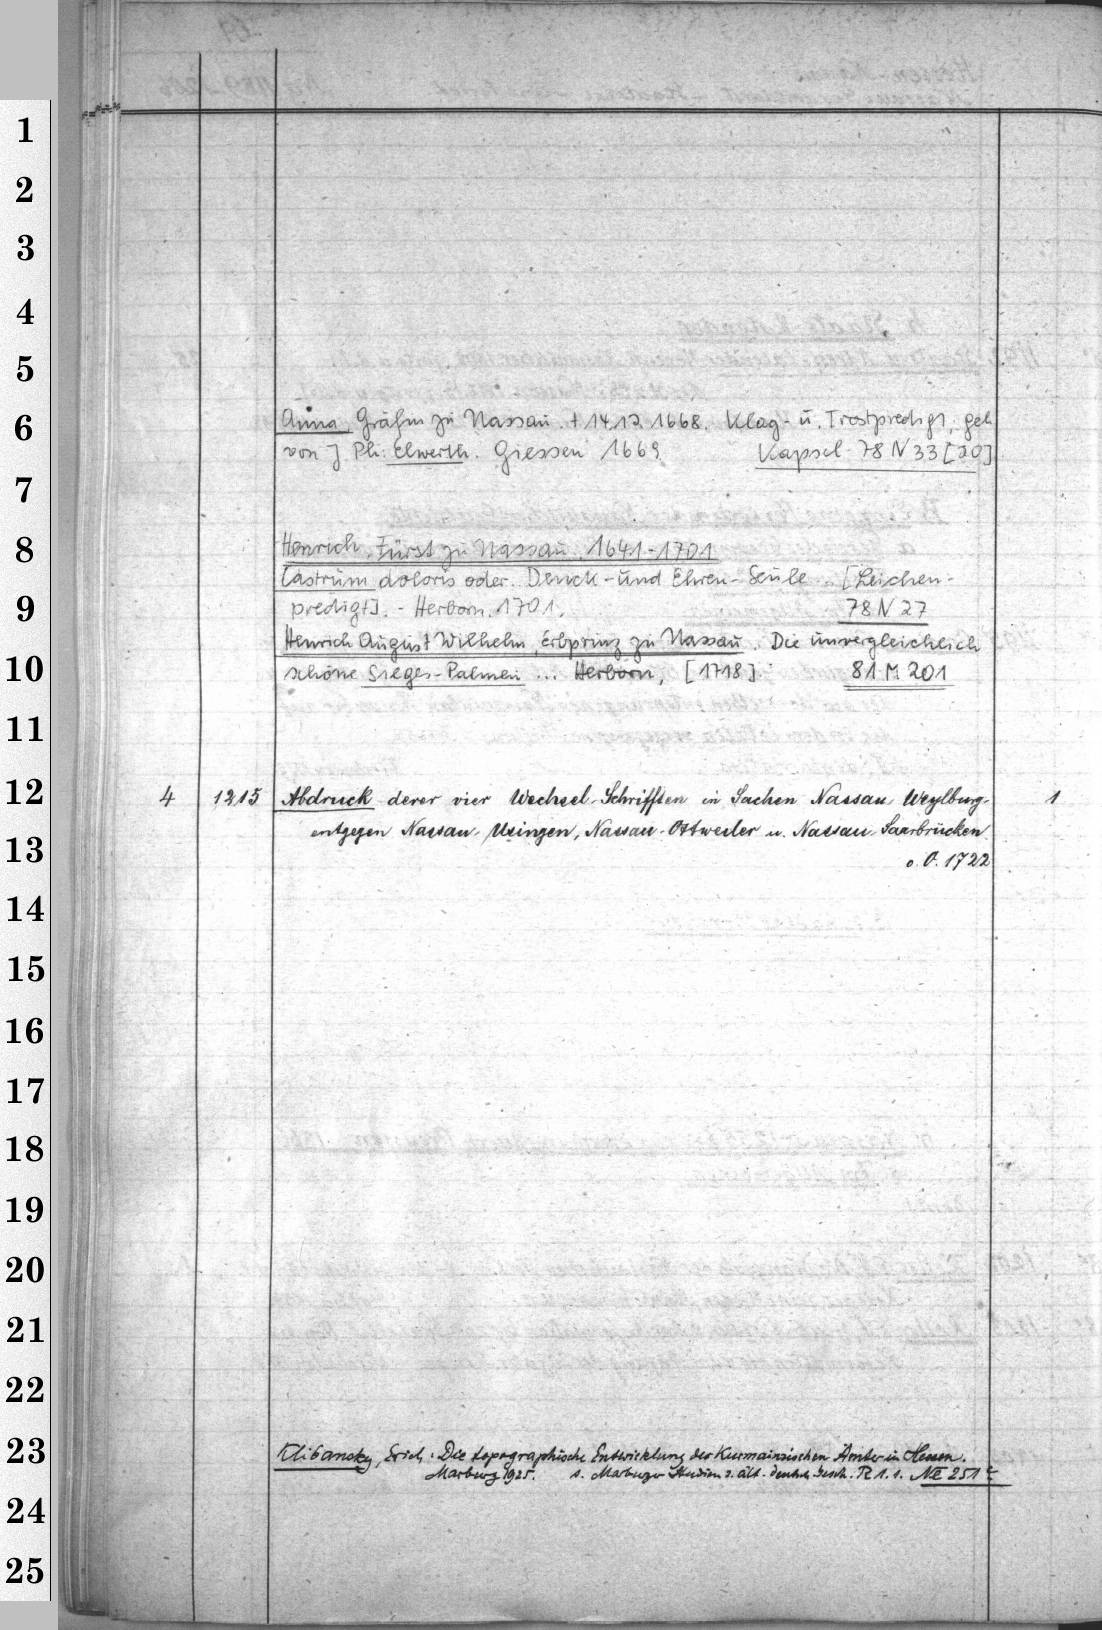 1
2
3
4
5
6
7
8
9
10
11
12
13
14
15
16
17
18
19
20
21
22
23
24
25
Anna, Gräfin zu Nassau. † 14.12.1668. Klag- u. Trostpredigt, geh
von J Ph. Elwerth. Giessen 1669 Kapsel 78 N 33 [20]
Henrich, Fürst zu Nassau, 1641-1701
Castrum doloris oder. Denck-und Ehren-Seule ... [Leichen-
predigt]. - Herborn. 1701. 78 N 27
Henrich August Wilhelm, Erbprinz zu Nassau. Die unvergleichlich
schöne Sieges-Palmen ... Herborn, [1718]. 81 M 201
4 1215 Abdruck derer vier Wechsel-Schrifften in Sachen Nassau-Weylburg- 1
entgegen Nassau-Usingen, Nassau-Ottweiler u. Nassau-Saarbrücken
o. O. 1722
Klibansky, Erich: Die topographische Entwicklung der Kurmainzischen Ämter in Hessen.
Marburg 1925. s. Marburger Studien z. ält. deutsch. Gesch. R 1. 1. NE 251